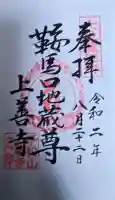 奉拝
令和二年
八月二十二日
鞍馬口地蔵尊
上善寺